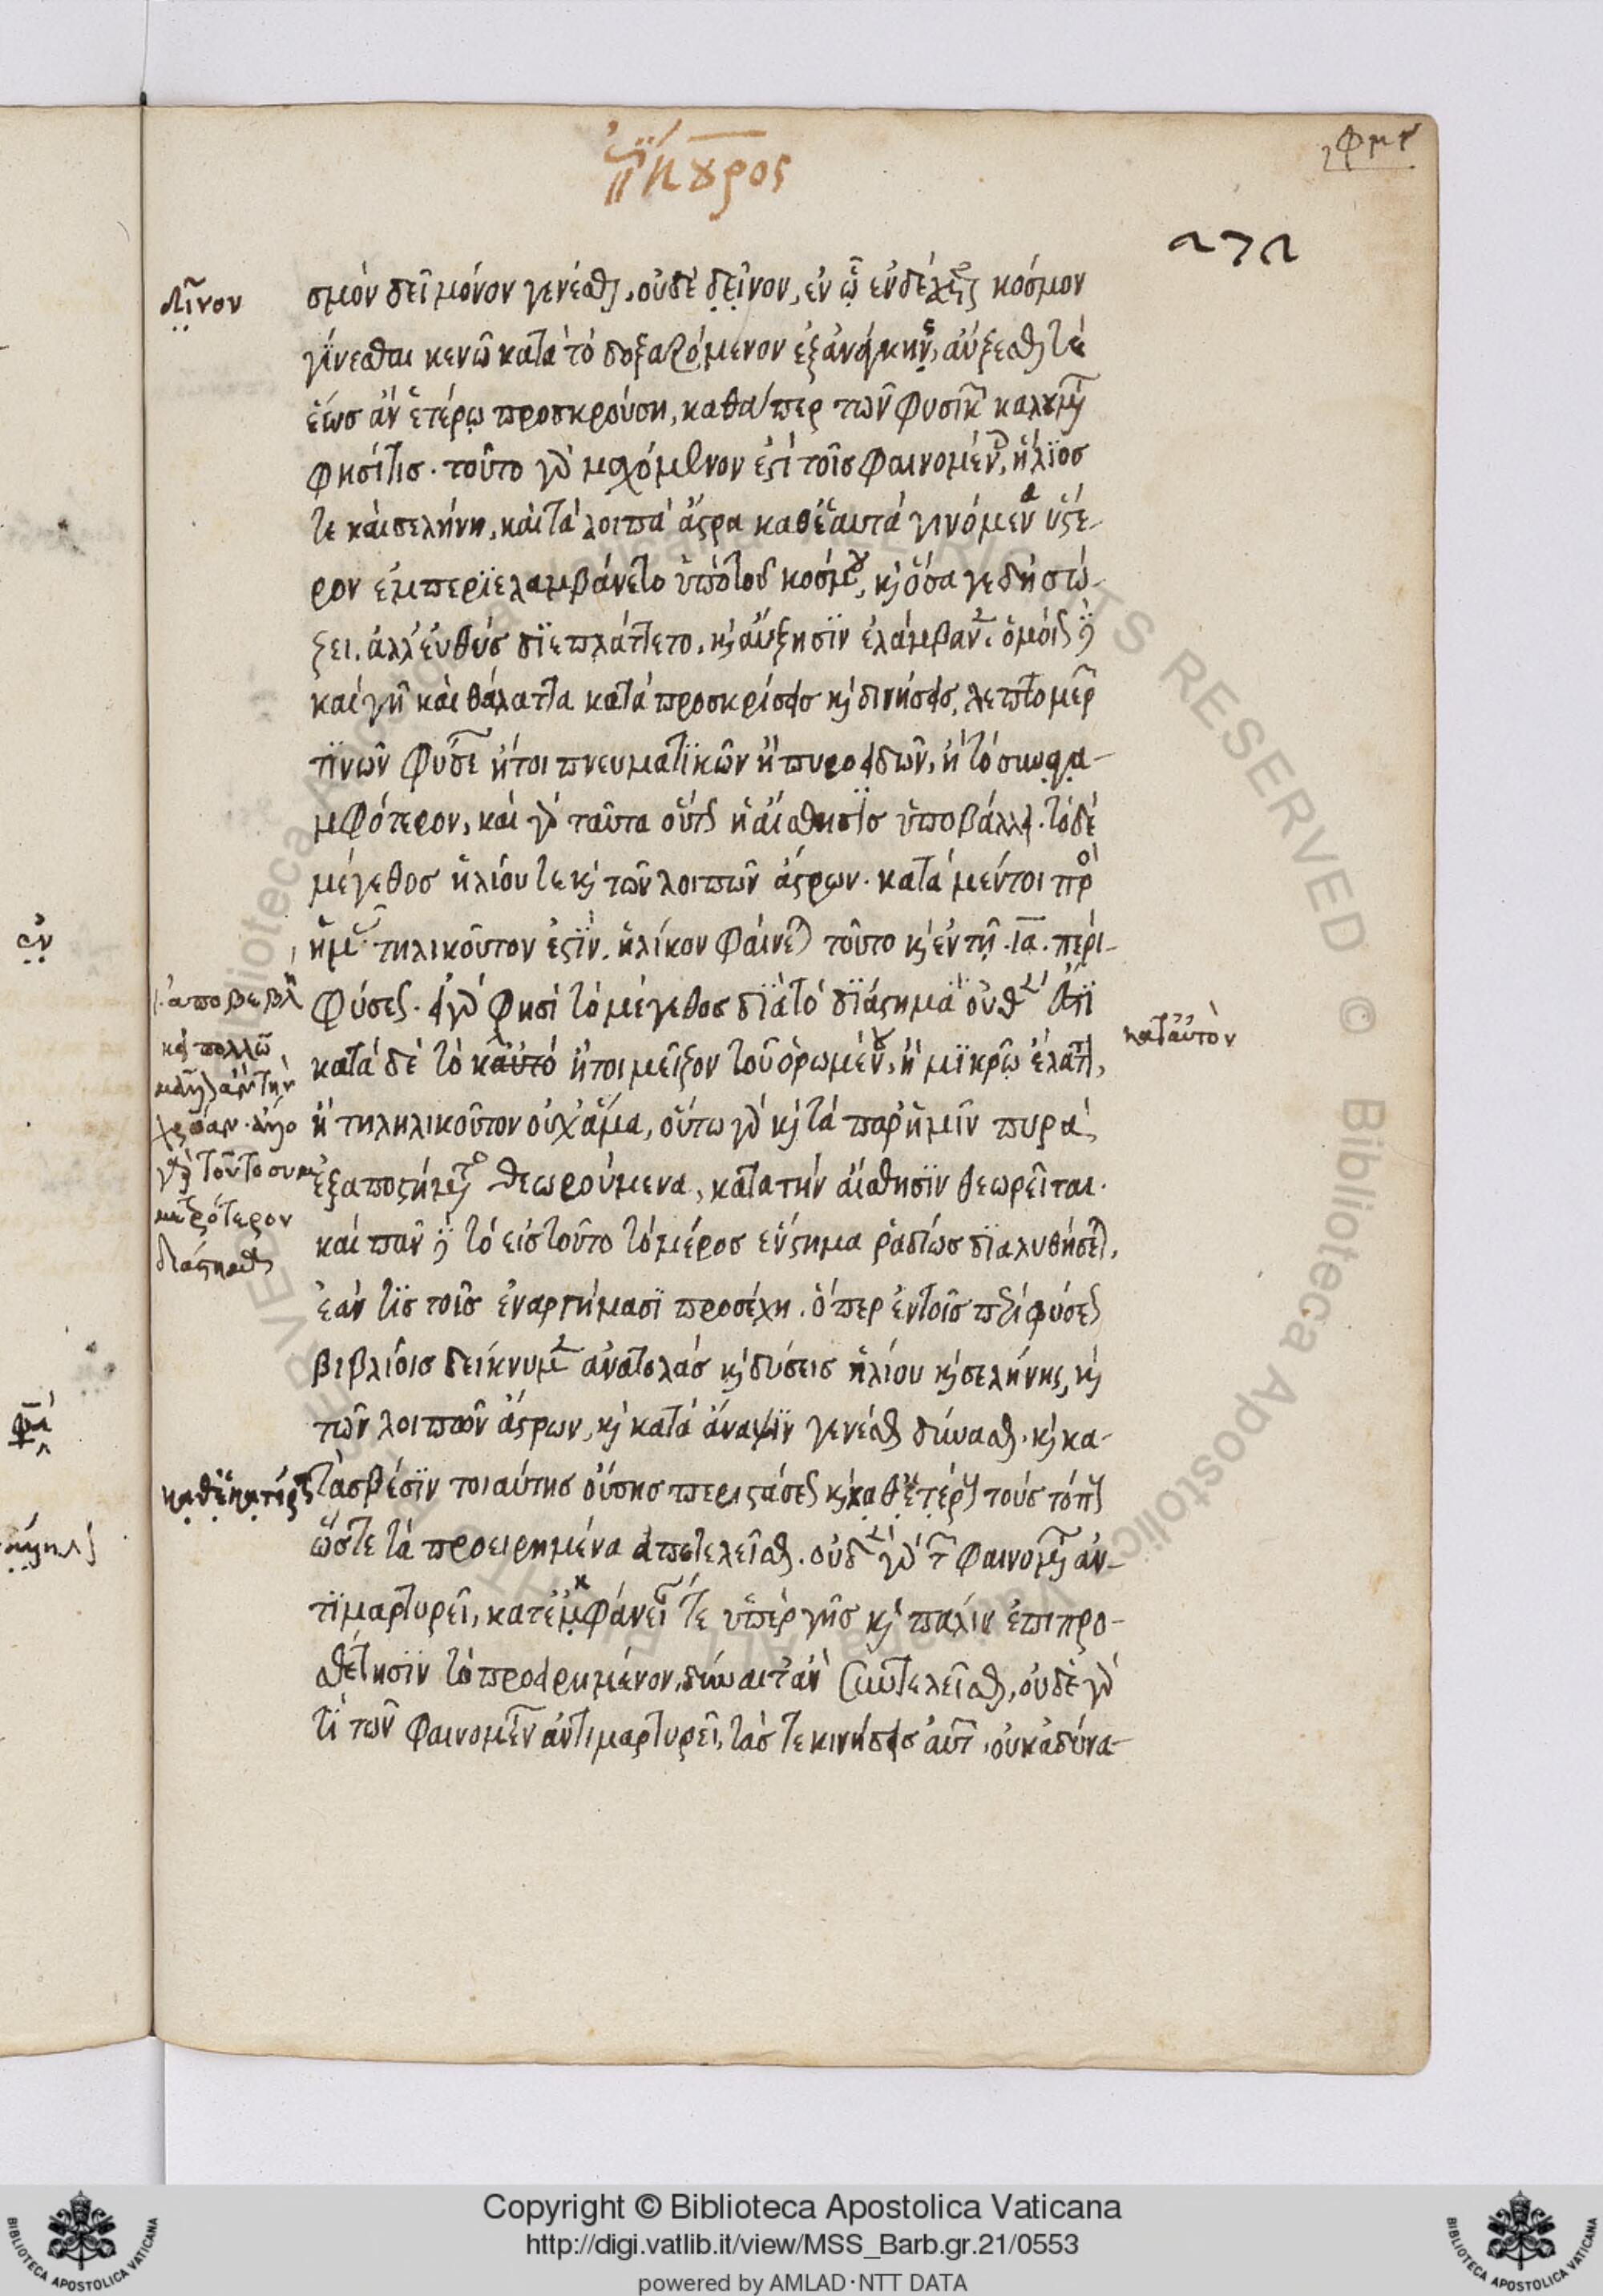 ἐπίκουρος
φμγ
272
δῖνον
σμὸν δεῖ μόνον γενέσθαι, οὐδὲ δεῖνον, ἐν ᾧ ἐνδέχεται κόσμον
γίνεσθαι κενῶ κατὰ τὸ δοξαζόμενον ἐξ ἀνάγκης, αὔξεσθαί τε
ἕως ἂν ἑτέρῳ προσκρούση, καθάπερ τῶν φυσικῶν καλουμένων
φησί τις. τοῦτο γὰρ μαχόμενον ἐστὶ τοῖς φαινομένοις, ἥλιος
τε καὶ σελήνη, καὶ τὰ λοιπὰ ἄστρα καθ' ἑαυτὰ γινόμενα ὕστε-
ρον ἐμπεριελαμβάνετο ὑπὸ τοῦ κόσμου, καὶ ὅσα γε δὴ σώ-
ζει. ἀλλ' εὐθὺς διεπλάττετο, καὶ αὔξησιν ἐλάμβανεν. ὁμοίως δὲ
καὶ γῆ καὶ θάλαττα κατὰ προσκρίσεις καὶ δινήσεις, λεπτομερῶν
τινῶν φύσεων ἤτοι πνευματικῶν ἢ πυροειδῶν, ἢ τὸ συνα-
μφότερον, καὶ γὰρ ταῦτα οὕτως ἡ αἴσθησις ὑποβάλλει. τὸ δὲ
μέγεθος ἡλίου τε καὶ τῶν λοιπῶν ἄστρων. κατὰ μέντοι πρὸς
ἐν
ἡμᾶς τηλικοῦτον ἐστὶν. ἡλίκον φαίνεται τοῦτο καὶ ἐν τῇ .ια. περὶ
ἀποβεβλή
φύσεως. εἰ γὰρ φησὶ τὸ μέγεθος διὰ τὸ διάστημα
κει πολλῷ
μᾶλλον ἂν τὴν
κατ' αὐτὸν
κατὰ δὲ τὸ καὐτό ἤτοι μεῖζον τοῦ ὁρωμένου, ἢ μικρῷ ἔλαττον,
χρόαν. ἄλλο
ἢ τηληλικοῦτον οὐχ ἅμα, οὕτω γὰρ καὶ τὰ παρ' ἡμῖν πυρὰ
γὰρ τούτο συμ
μετρότερον
ἐξ ἀποστήματος θεωρούμενα, κατὰ τὴν αἴσθησιν θεωρεῖται.
διάστημα
καὶ πᾶν δὲ τὸ εἰς τοῦτο τὸ μέρος ἔνστημα ῥᾳδίως διαλυθήσεται,
ἐάν τις τοῖς ἐναργήμασι προσέχη. ὅπερ ἐν τοῖς περὶ φύσεως
βιβλίοις δείκνυμεν ἀνατολὰς καὶ δύσεις ἡλίου καὶ σελήνης, καὶ
τῶν λοιπῶν ἄστρων, καὶ κατὰ ἄναψιν γενέσθαι δύνασθαι. καὶ κα-
καθ' ἑκατέρους
τὰ σβέσιν τοιαύτης οὔσης περιστάσεως καὶ καθ' ἑτέρους τοὺς τόπους
ὥστε τὰ προειρημένα ἀποτελεῖσθαι. οὐδὲν γὰρ τῶν φαινομένων ἀν-
τιμαρτυρεῖ, κατ' ἐμφάνειάν τε ὑπὲρ γῆς καὶ πάλιν ἐπιπρο-
σθέτησιν τὸ προειρημένον, δύναιτ' ἂν συντελεῖσθαι, οὐδὲ γάρ
τι τῶν φαινομένων ἀντιμαρτυρεῖ, τάς τε κινήσεις αὐτῶν, οὐκ ἀδύνα-
Copyright © Biblioteca Apostolica Vaticana
http://digi.vatlib.it/view/MSS_Barb.gr.21/0553
powered by AMLAD·NTT DATA